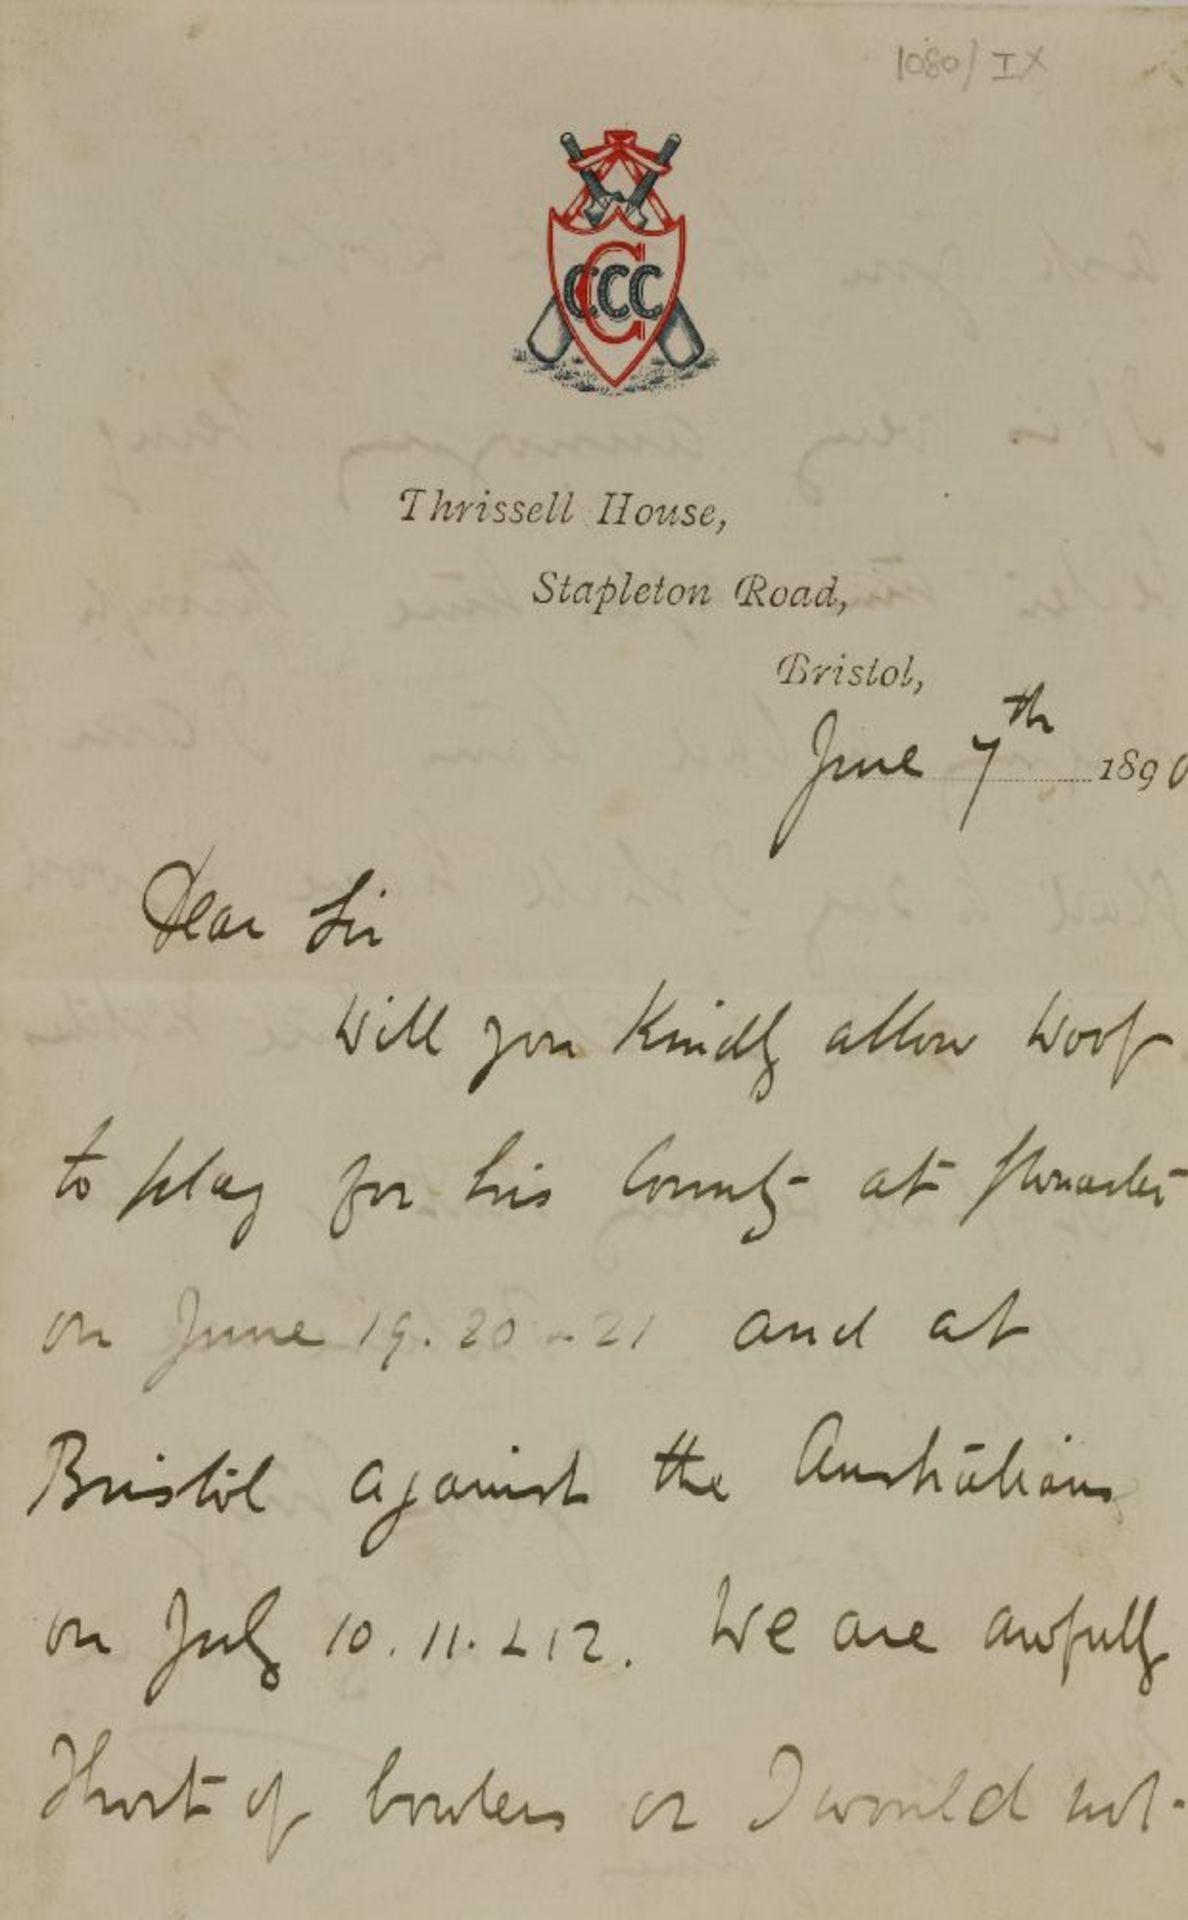 1080/IX
CCCC
Thrissell House,
Stapleton Road,
Bristol,
June 7th 1890
Dear Sir
Will you Kindly allow Woof
to play for his County at
on June 19. 20 - 21 and at
Bristol against the Australians
on July 10. 11. & 12. We are awfully
Short of bowlers or I would not